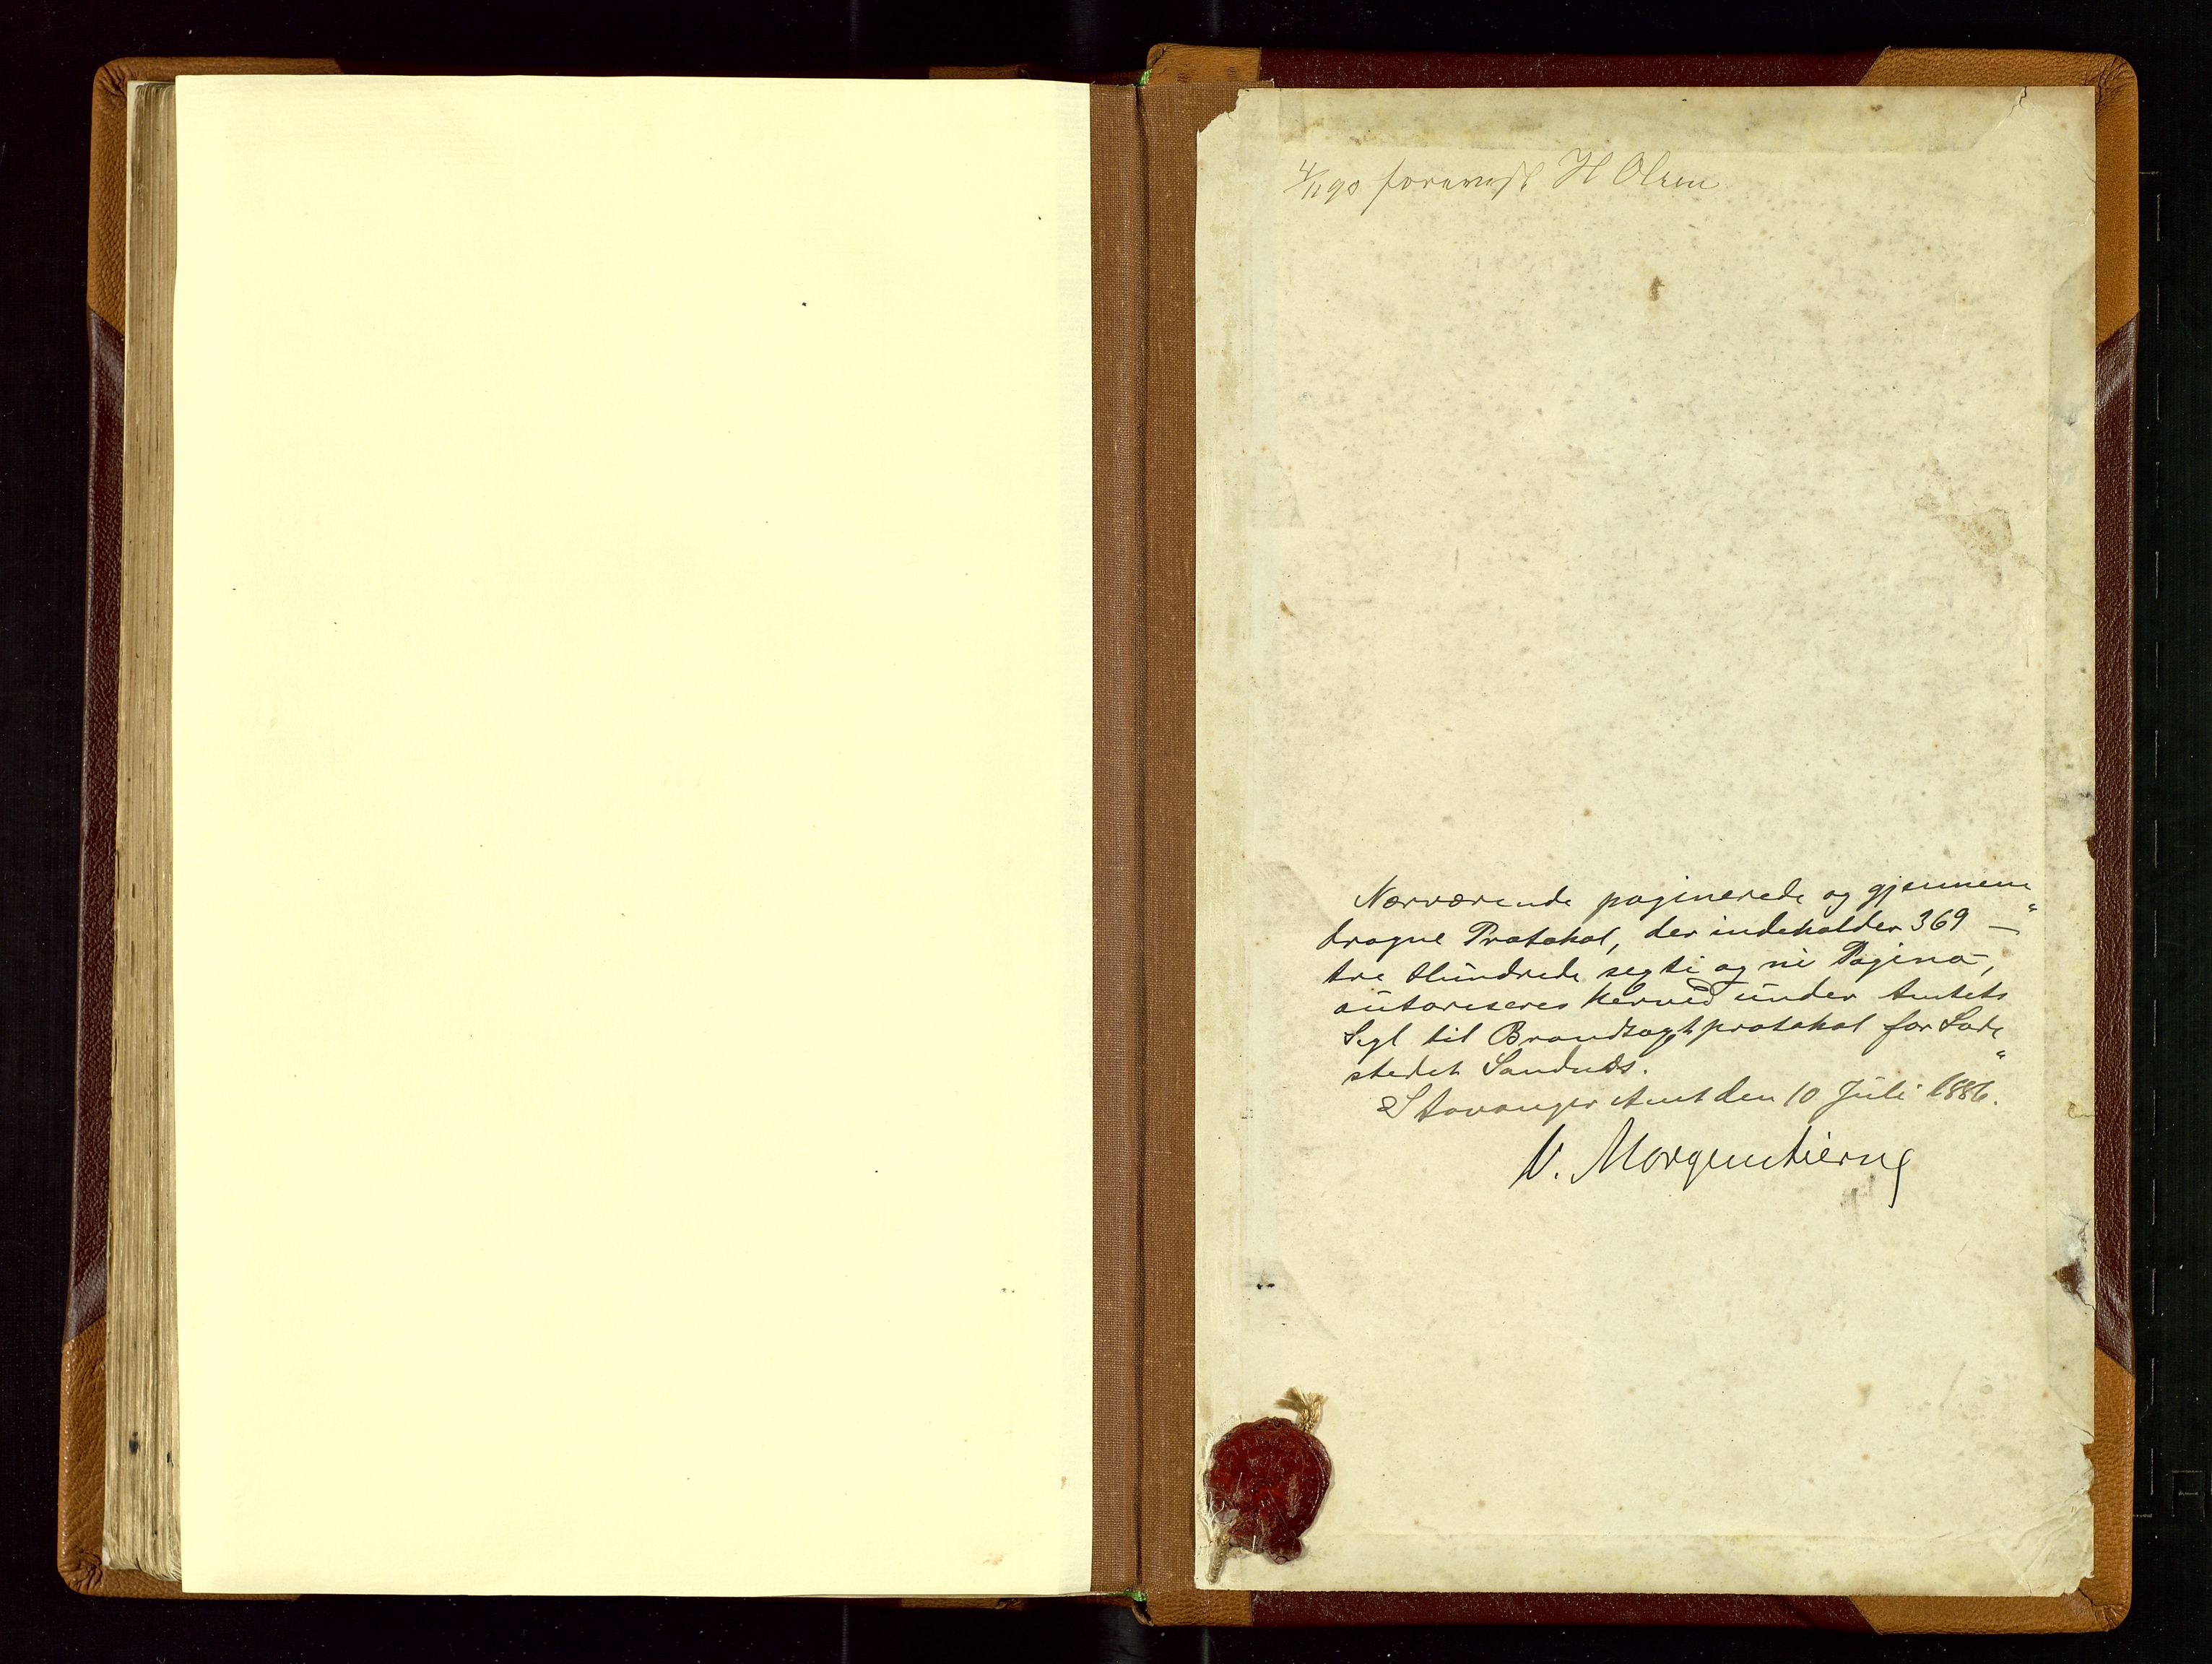 4/11 90 forevist H Olsen
Nærværende paginerede og gjennem
dragne Protokol, der indeholder 369 —"
tre Hundrede segsti og ni Pagina,
autoriseres herved under Amtets
Segl til Brandtaxtprotokol for Lade
stedet Sandnæs. "
Stavanger Amt den 10 Juli 1886.
V. Morgenstierne